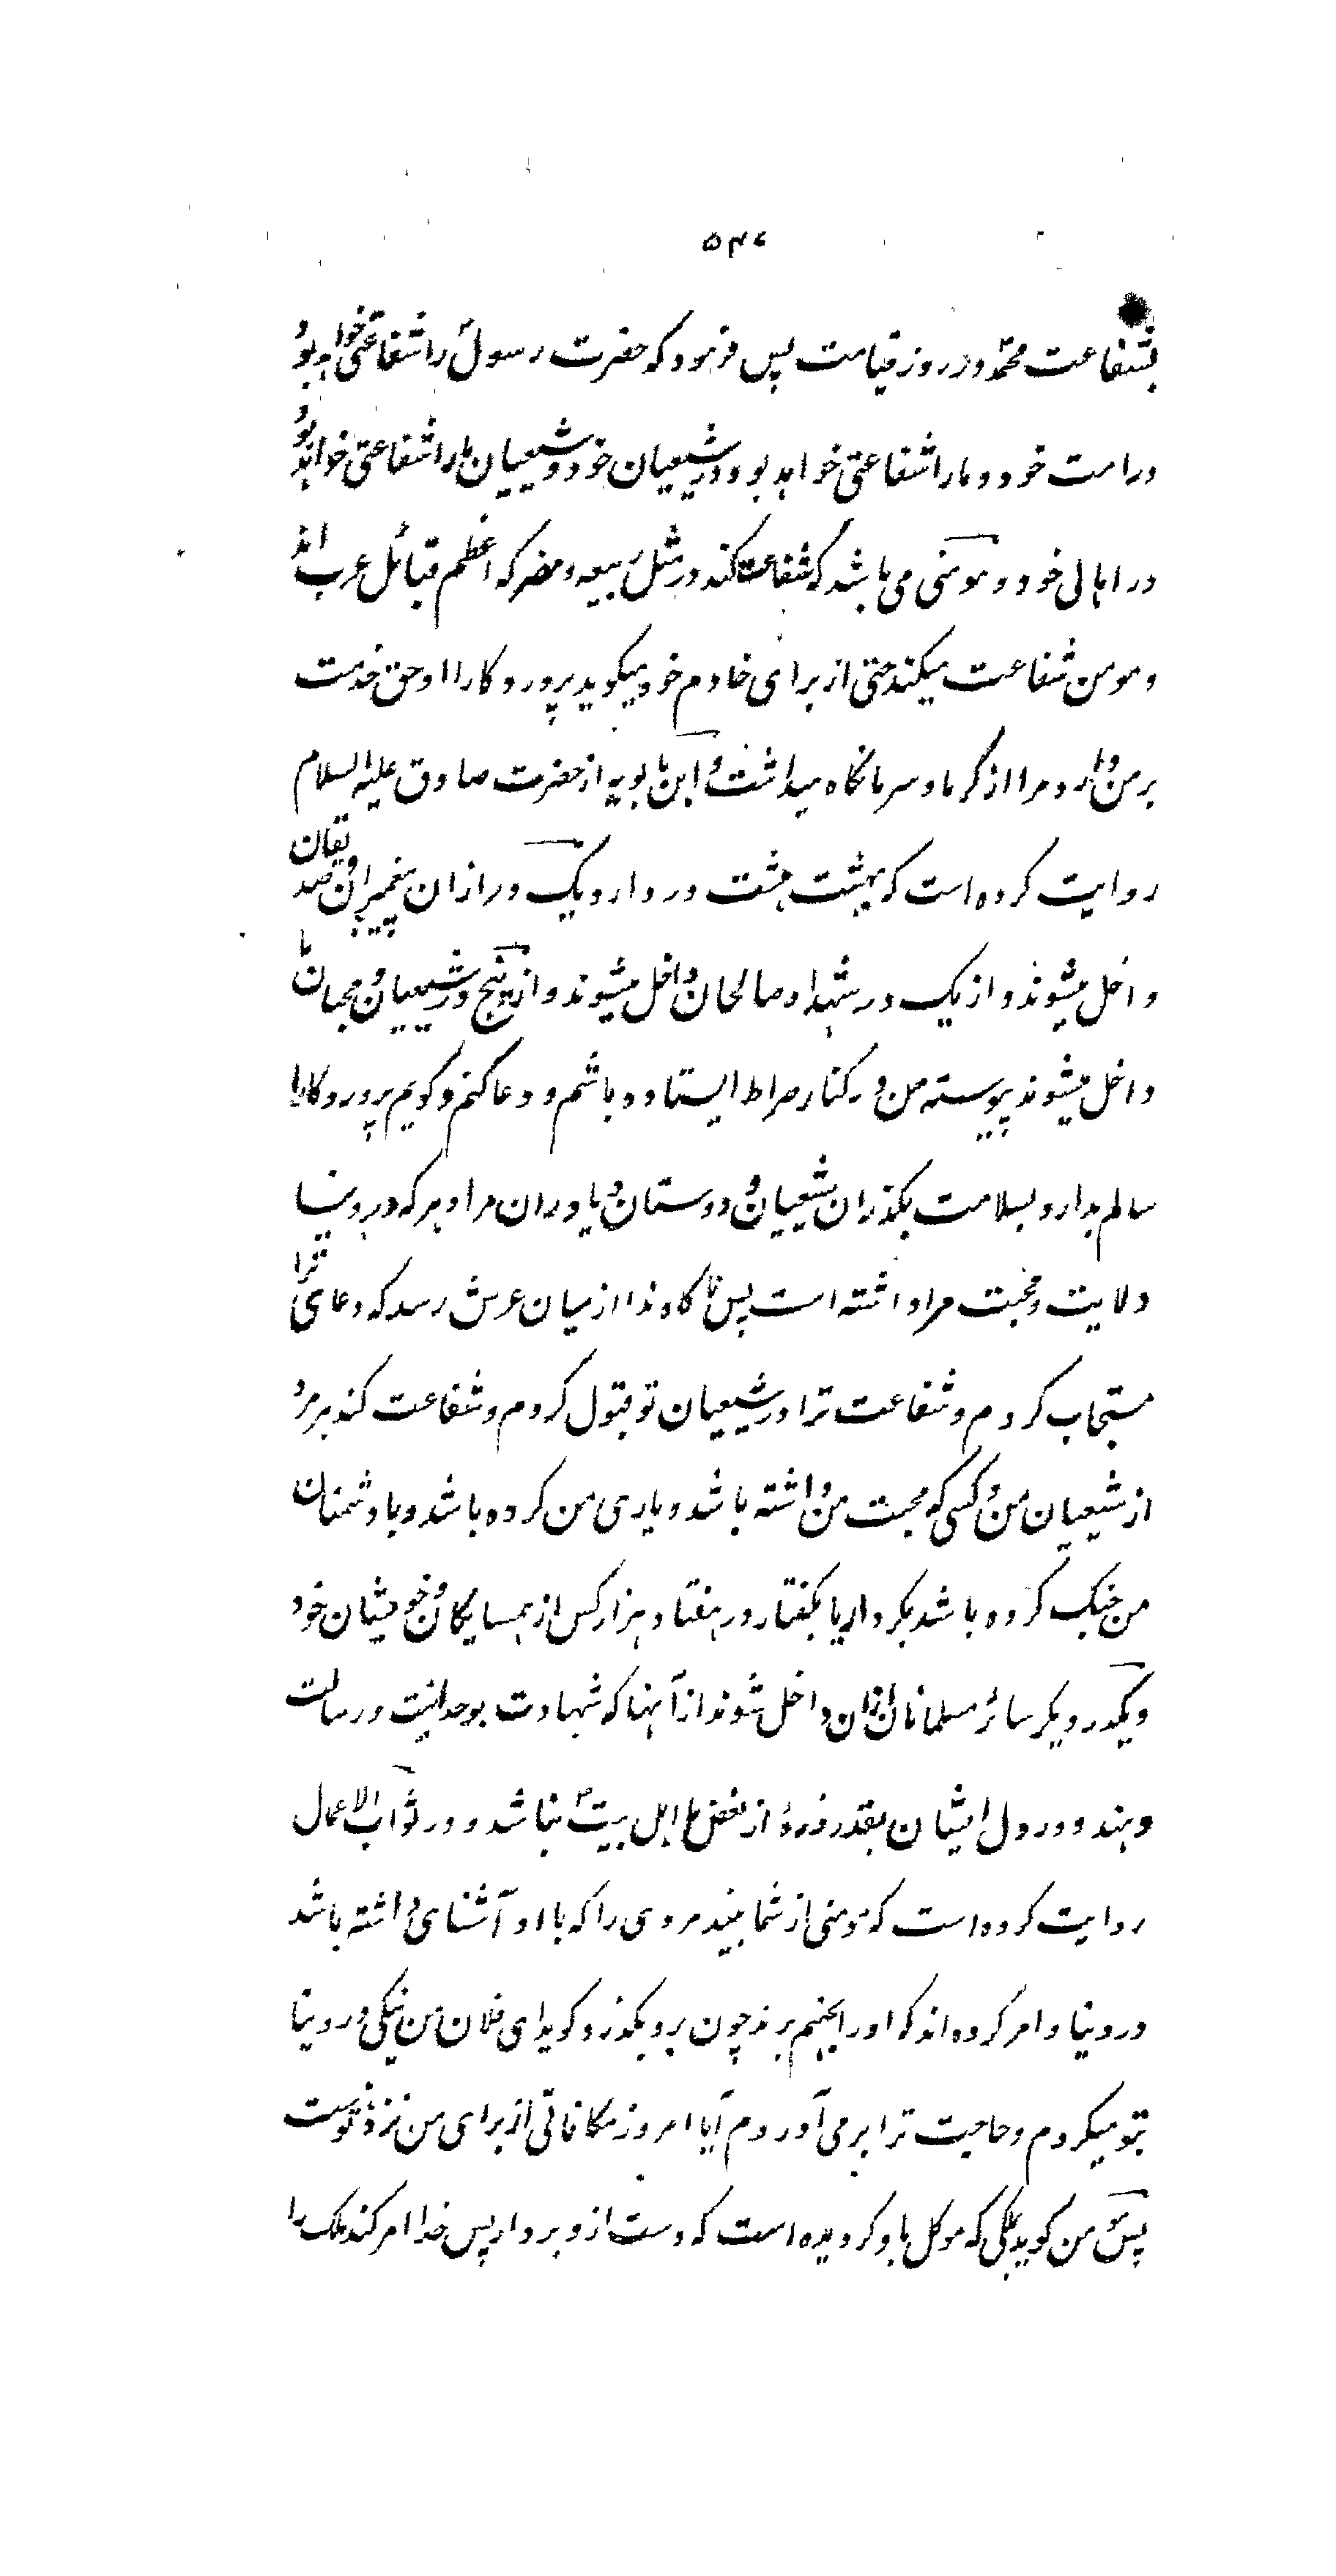 ۵۴۷
بشفاعت محمدؐ در روز قیامت پس فرمود که حضرت رسولؐ را شفاعتی خواهد بود
در امت خود و ما را شفاعتی خواهد بود در شیعیان خود و شیعیان ما را شفاعتی خواهد بود
در اهالی خود و مومنی می باشد که شفاعت کند در مثل ربیعه و مضر که اعظم قبائل عرب اند
و مومن شفاعت میکند حتی از برای خادم خود میکوید پروردکارا او حق خدمت
بر من دارد و مرا از کرما و سرما نکاه میداشت و ابن بابویه از حضرت صادق علیه السلام
روایت کرده است که بهشت هشت در دارد و یک در ازان پیغمبران و صدیقان
داخل میشوند و از یک در شهدا و صالحان داخل میشوند و از پنج در شیعیان و محبان ما
داخل میشوند پیوسته من در کنار صراط ایستاده باشم و دعا کنم و کویم پروردکارا
سالم بدار و بسلامت بکذران شیعیان و دوستان و یاوران مرا و هر که در دنیا
ولایت و محبت مرا داشته است پس ناکاه ندا از میان عرش رسد که دعای ترا
مستجاب کردم و شفاعت ترا در شیعیان تو قبول کردم و شفاعت کند هر مرد
از شیعیان من و کسی که محبت من داشته باشد و یاری من کرده باشد و با دشمنان
من جنک کرده باشد بکردار یا بکفتار در هفتاد هزار کس از همسایکان و خویشان خود
و یکدر دیکر سائر مسلمانان ازان داخل شوند از آنها که شهادت بوحدانیت و رسالت
دهند و در دل ایشان بقدر ذرهٔ از بغض ما اهل بیتؑ نباشد و در ثواب الاعمال
روایت کرده است که مومنی از شما بیند مردی را که با او آشنای داشته باشد
در دنیا و امر کرده اند که او را بجهنم برند چون برو بکذرد کوید ای فلان من نیکی در دنیا
بتو میکردم و حاجت ترا بر می آوردم آیا امروز مکافاتی از برای من نزد تو هست
پس مومن کوید بملکی که موکل باو کردیده است که دست ازو بردار پس خدا امر کند ملک را